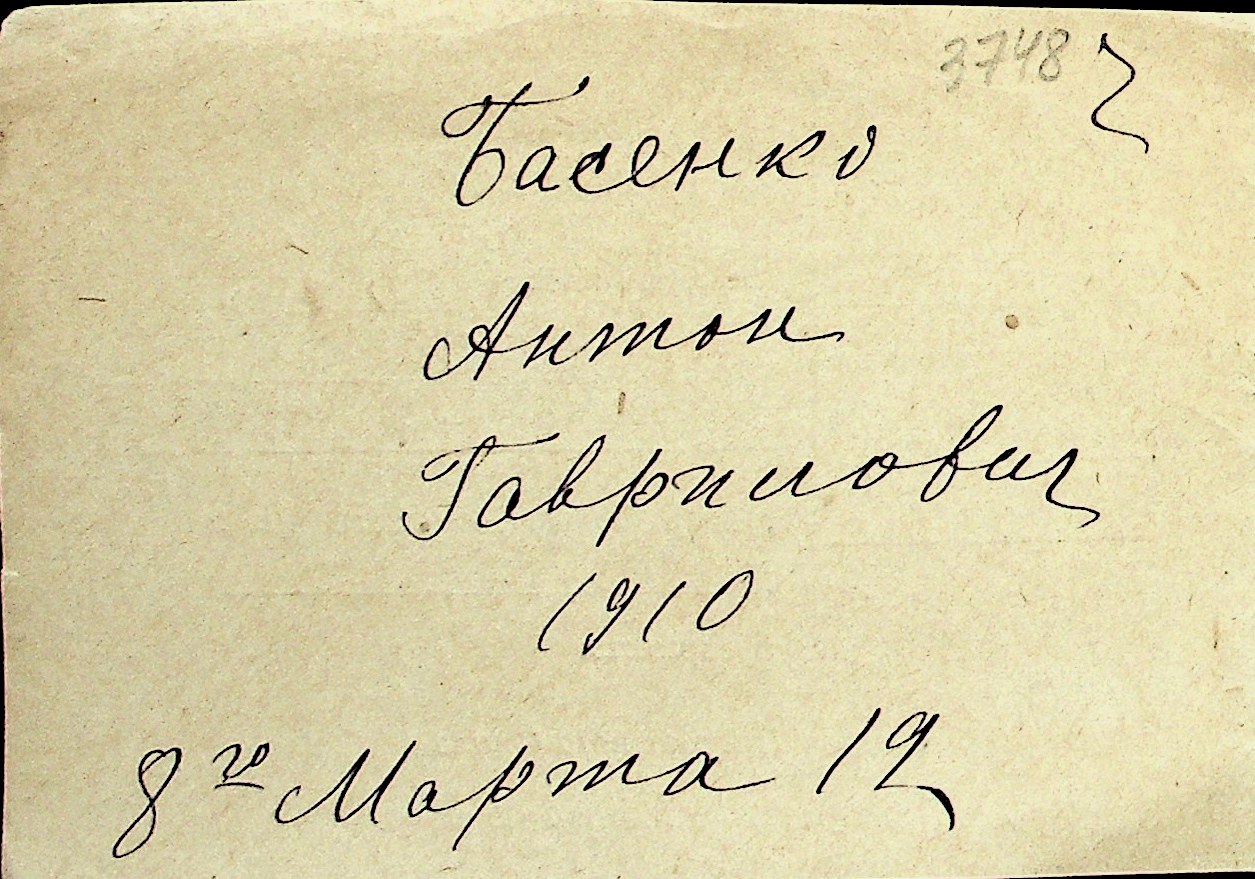 3748 ч
Басенко
Антон
Гаврилович
1910
8го Марта 12